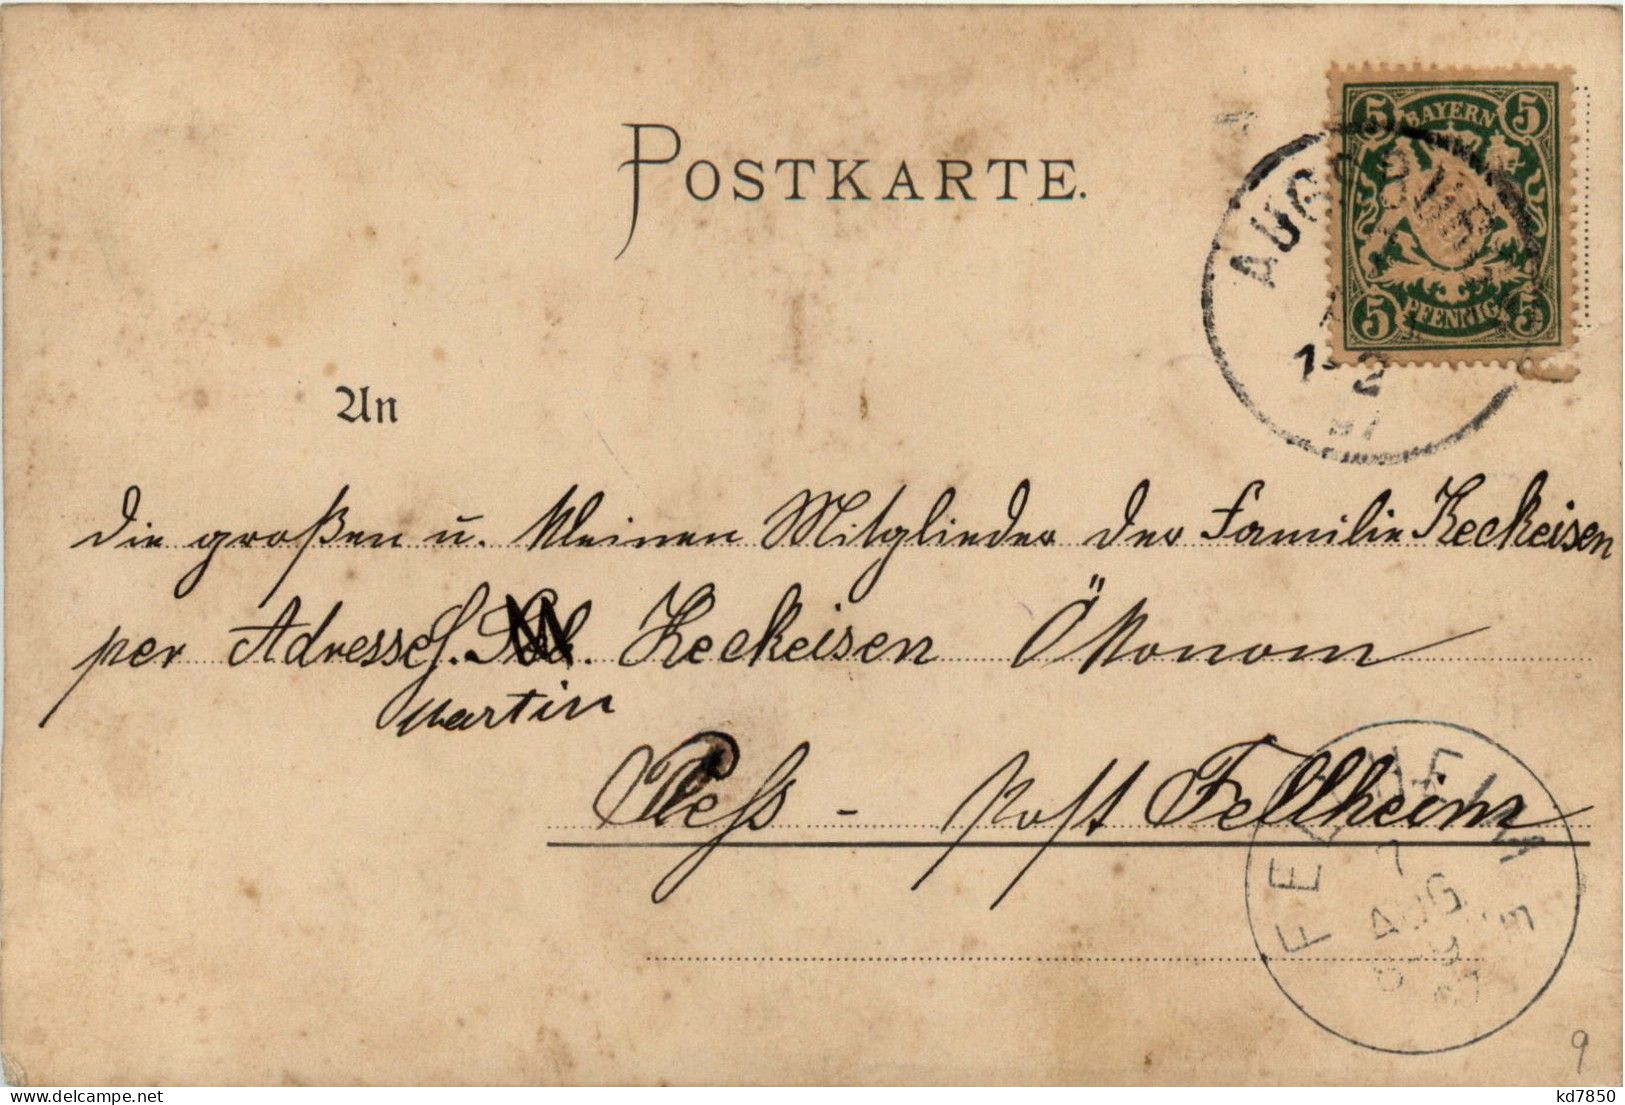 POSTKARTE.
5 BAYERN 5
5 PFENNIG 5
AUGSBURG
1-2
97
An
die großen u. kleinen Mitglieder der Familie Keckeisen
per Adresse H. Keckeisen Ökonom
Martin
Pless - Post Fellheim
FELLHEIM
7
AUG
97
9
kd7850